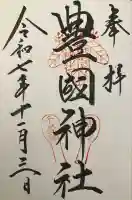 奉拝
豊國神社
令和七年十一月三日